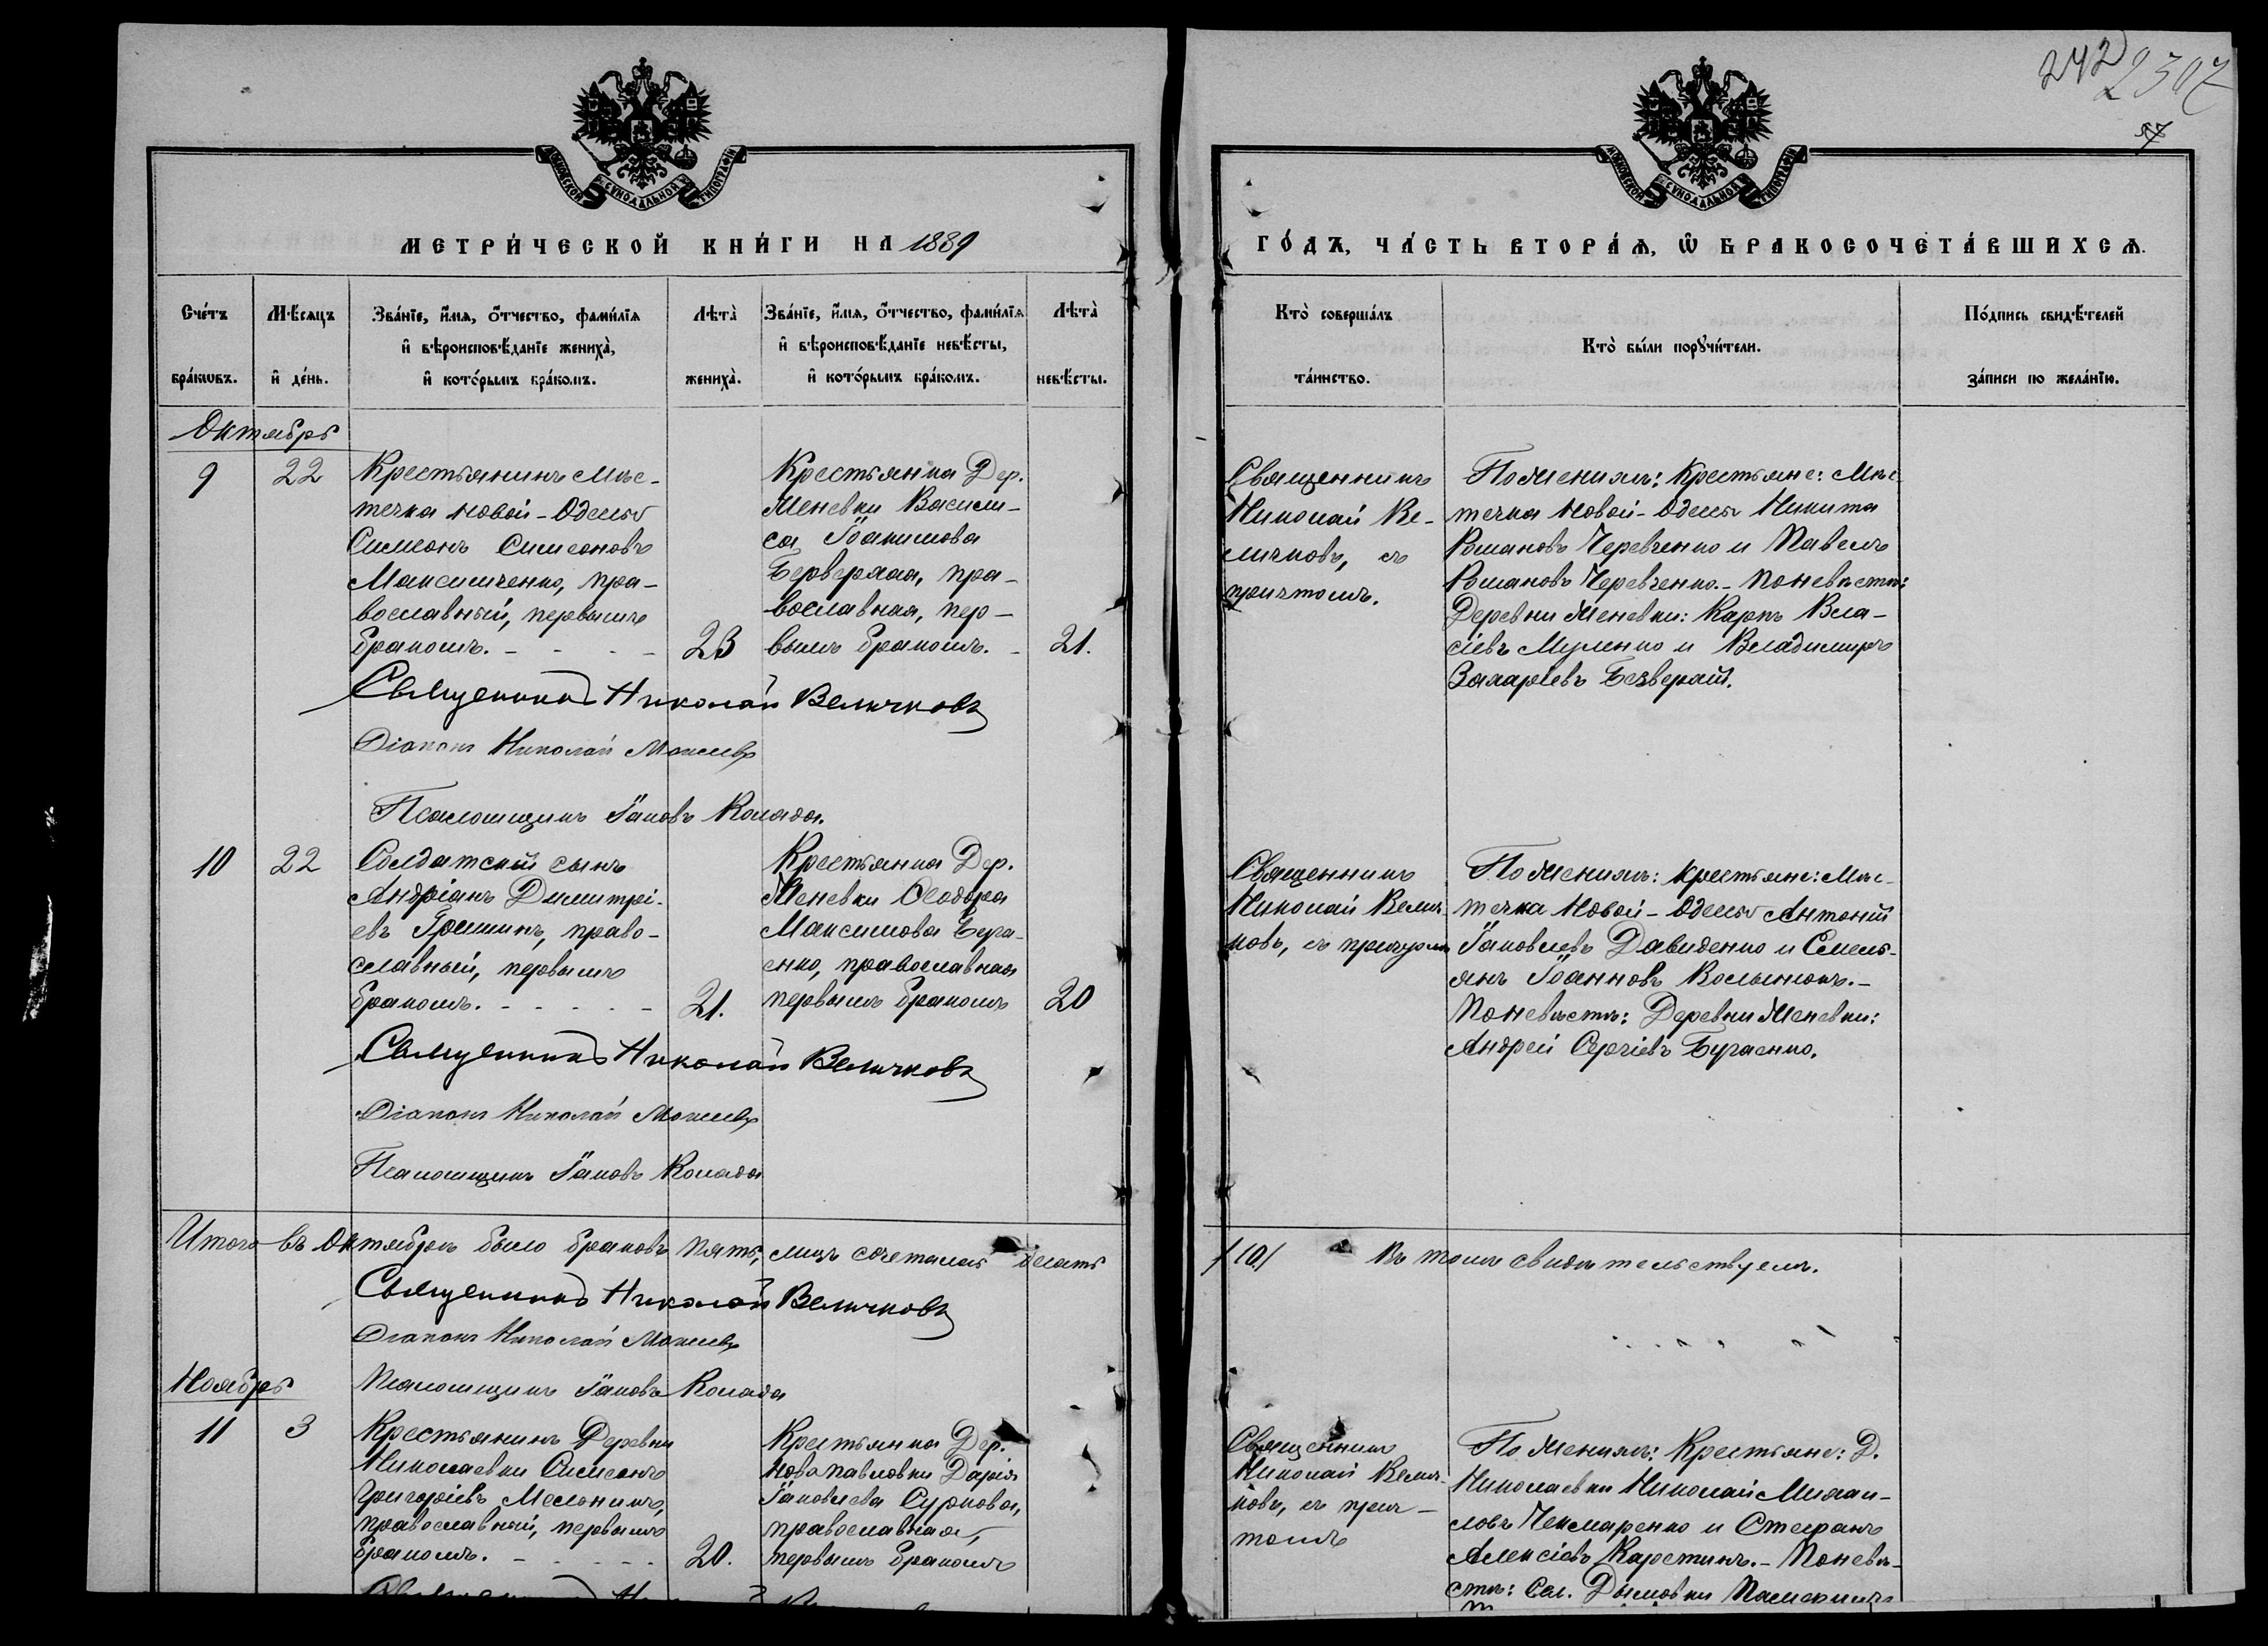 242
2307
МОСКОВСКОЙ СѴНОДАЛЬНОЙ ТИПОГРАФІИ
МОСКОВСКОЙ СѴНОДАЛЬНОЙ ТИПОГРАФІИ
МЕТРИ́ЧЕСКОЙ КНИ́ГИ НА 1889
ГО́ДЪ, ЧА́СТЬ ВТОРА́Ѧ, Ѡ БРАКОСОЧЕТА́ВШИХСѦ.
Сче́тъ бра́кѡвъ.
Мѣ́сяцъ и҆ де́нь.
Зва́нїе, и҆́мя, о҆́тчество, фами́лїя
и҆ вѣроисповѣ́данїе жениха̀,
и҆ кото́рымъ бра́комъ.
Лѣта̀ жениха̀.
Зва́нїе, и҆́мя, о҆́тчество, фами́лїя
и҆ вѣроисповѣ́данїе невѣ́сты,
и҆ кото́рымъ бра́комъ.
Лѣта̀ невѣ́сты.
Кто̀ соверша́лъ
та́инство.
Кто̀ бы́ли порꙋчи́тели.
По́дпись свидѣ́телей
за́писи по жела́нїю.
Октябрь
9
22
Крестьянинъ Мѣс-
течка Новой-Одессы
Симеонъ Симеоновъ
Максимченко, пра-
вославный, первымъ
бракомъ. - - - -
23
Крестьянка Дер.
Меневки Васили-
са Іоакимова
Безверхая, пра-
вославная, пер-
вымъ бракомъ. -
21.
Священникъ
Николай Ве-
личковъ, съ
причтомъ.
По жениху: Крестьяне: Мѣс-
течка Новой-Одессы Никита
Романовъ Черевченко и Павелъ
Романовъ Черевченко. - По невѣсте:
Деревни Меневки: Карпъ Вла-
сіевъ Муленко и Владимиръ
Захаріевъ Безверхій.
Священникъ Николай Величковъ
Діаконъ Николай
Псаломщикъ Іаковъ Колада.
10
22
Солдатскій сынъ
Андріанъ Димитрі-
евъ Гришинъ, право-
славный, первымъ
бракомъ. - - - - -
21.
Крестьянка Дер.
Меневки Ѳеодора
Максимова
православная
первымъ бракомъ
20
Священникъ
Николай Велич-
ковъ, съ причтомъ
По жениху: крестьяне: Мѣс-
течка Новой-Одессы Антоній
Іаковлевъ Давиденко и Емель-
янъ Іоанновъ Волынюкъ. -
По невѣстѣ: Деревни Меневки:
Андрей Сергіевъ Бугаенко.
Священникъ Николай Величковъ
Діаконъ Николай
Псаломщикъ Іаковъ Колада
Итого въ Октябрѣ было браковъ пять, лицъ сочеталось десять
/10/ Въ томъ свидѣтельствуемъ.
Священникъ Николай Величковъ
Діаконъ Николай
Псаломщикъ Іаковъ Колада
Ноябрь
11
3
Крестьянинъ Деревни
Николаевки Симеонъ
Григоріевъ
православный, первымъ
бракомъ. - - - - -
20.
Крестьянка Дер.
Новопавловки Дарія
Іаковлева Суркова,
православная,
первымъ бракомъ
Священникъ
Николай Велич-
ковъ, съ прич-
томъ
По жениху: Крестьяне: Д.
Николаевки Николай Михаи-
ловъ Чекмаренко и Стефанъ
Алексіевъ Карстинъ. - По невѣ-
стѣ: Сел. Дымовки